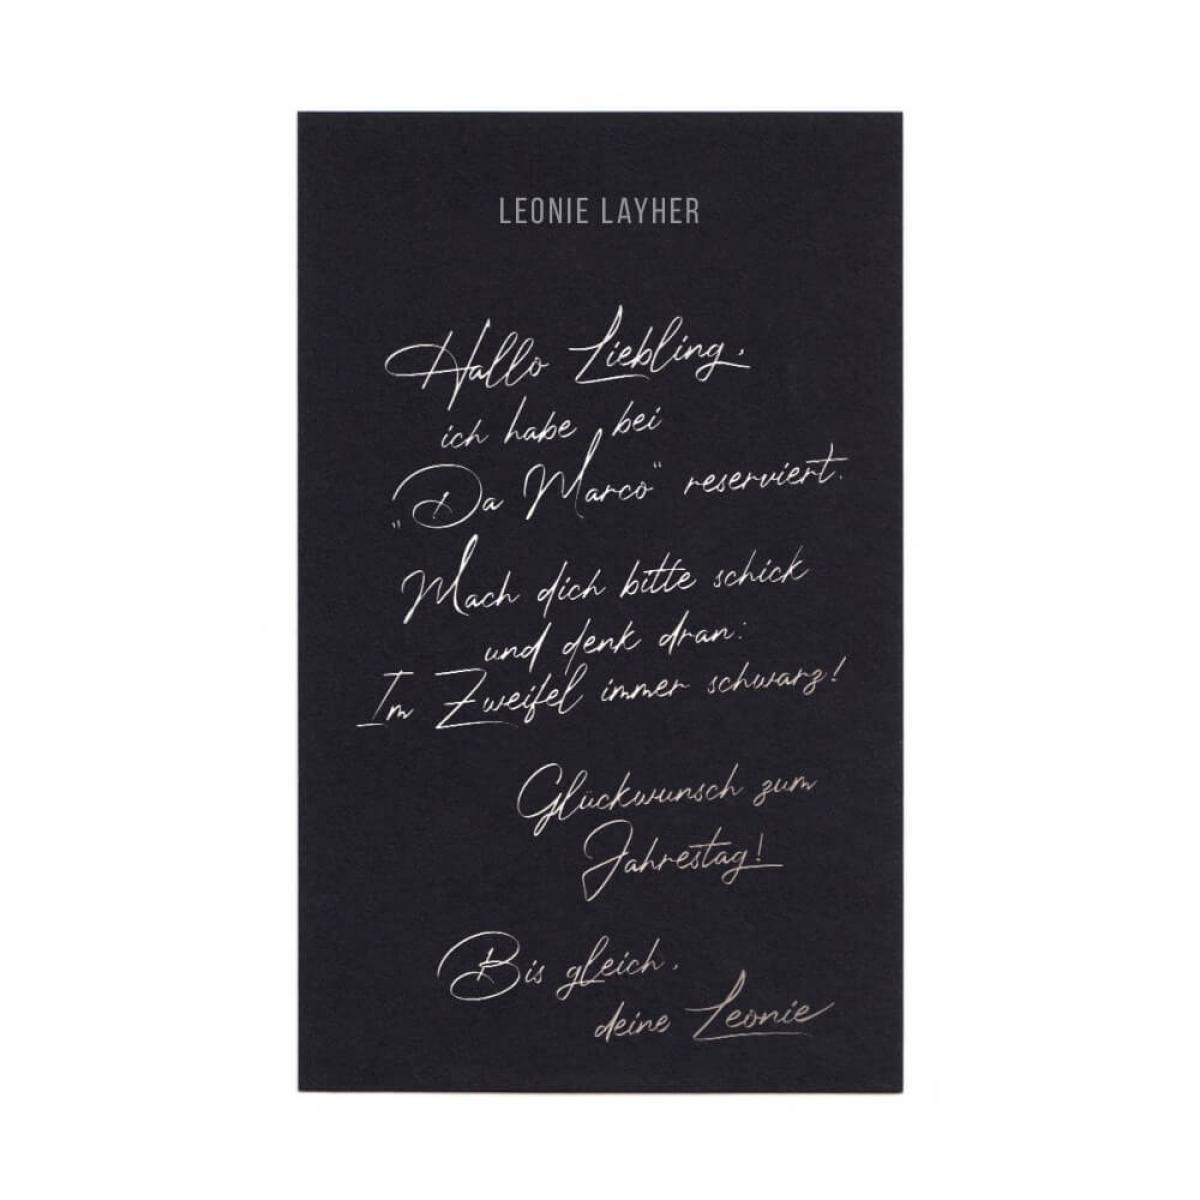 LEONIE LAYHER
Hallo Liebling,
ich habe bei
„Da Marco“ reserviert.
Mach dich bitte schick
und denk dran:
Im Zweifel immer schwarz!
Glückwunsch zum
Jahrestag!
Bis gleich,
deine Leonie